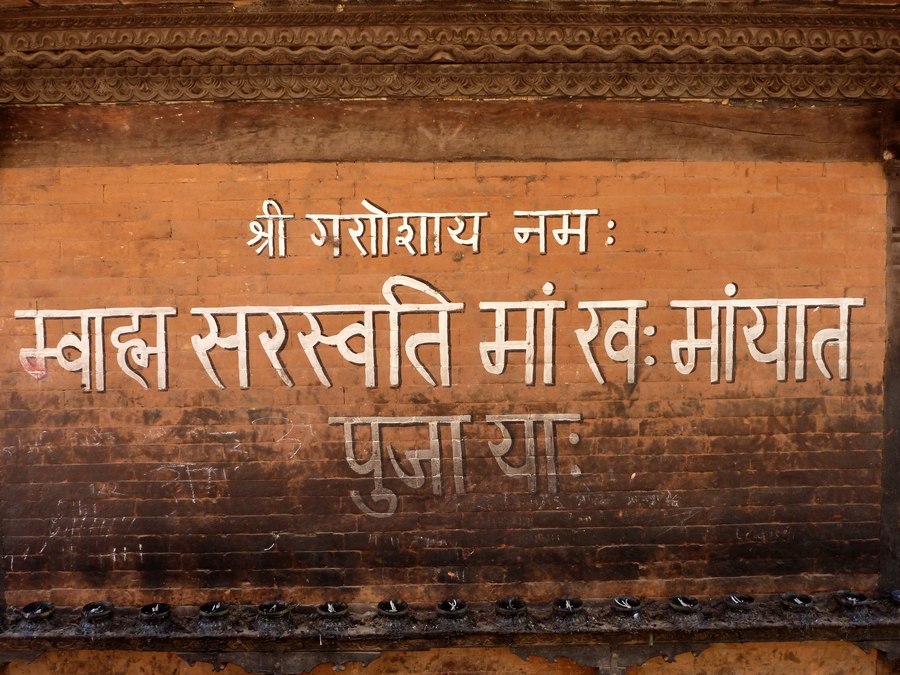 श्री गणेशाय नमः
म्वाह्म सरस्वति मां खः मांयात
पुजा याः